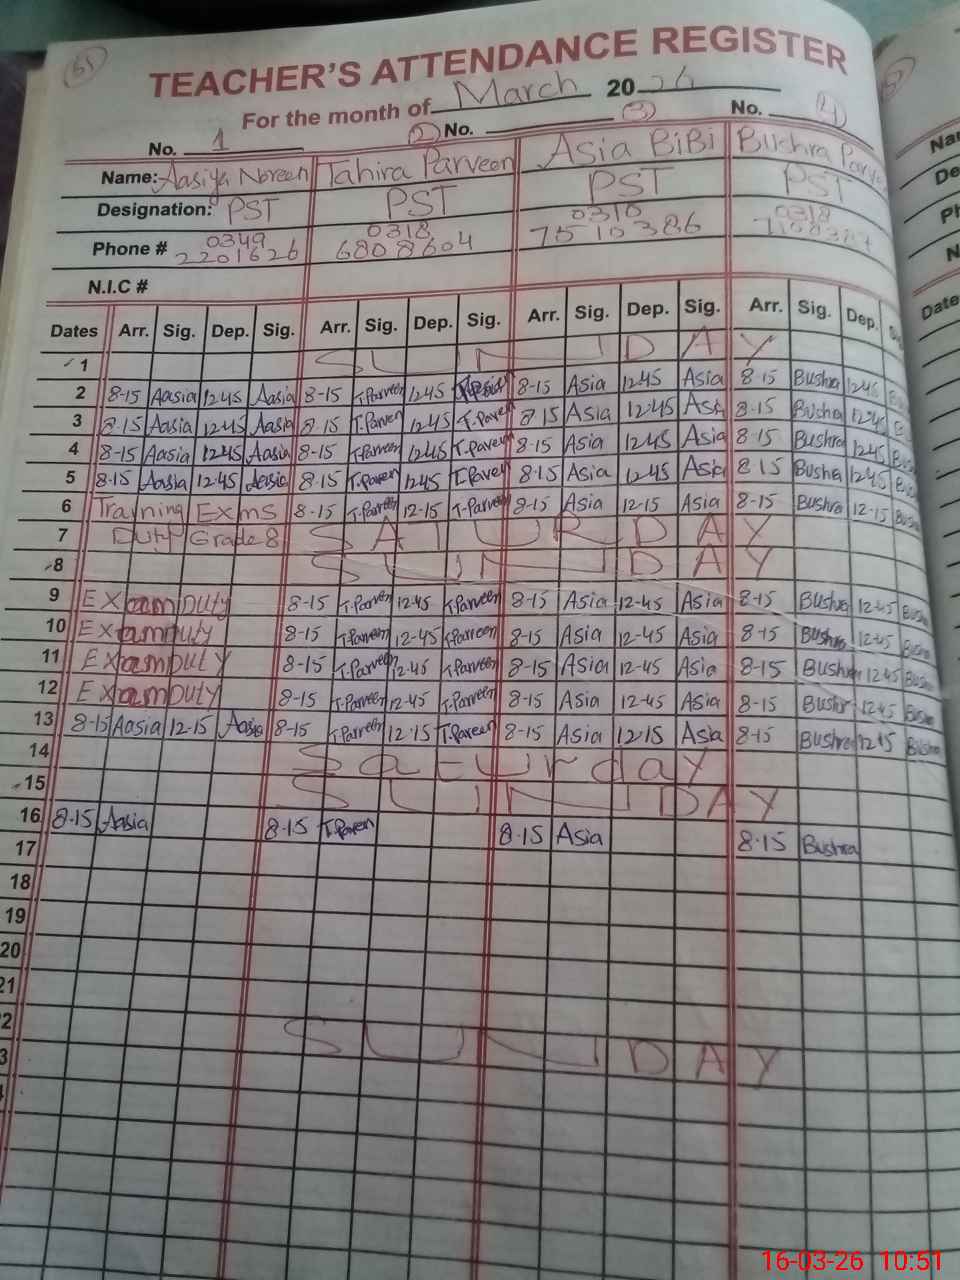 65
TEACHER'S ATTENDANCE REGISTER
For the month of March 2026
No. 1 (2) No. (3) No. (4)
Name: Aasiya Noreen Tahira Parveen Asia BiBi Bushra Parve
Designation: PST PST PST PST
Phone # 0349 0318 0310 0318
2201626 6808604 7510386
N.I.C #
Dates Arr. Sig. Dep. Sig. Arr. Sig. Dep. Sig. Arr. Sig. Dep. Sig. Arr. Sig. Dep.
1 SUNDAY
2 8-15 Aasia 12-45 Aasia 8-15 T.Parveen 12-45 8-15 Asia 12-45 Asia 8-15 Bushra 12-45 Bus
3 8-15 Aasia 12-45 Aasia 8-15 T.Parven 12-45 T.Parven 8-15 Asia 12-45 Asia 8-15 Bushra 12-45 B
4 8-15 Aasia 12-45 Aasia 8-15 T.Parveen 12-45 T.Parveen 8-15 Asia 12-45 Asia 8-15 Bushra 12-45 Bus
5 8-15 Aasia 12-45 Aasia 8-15 T.Parven 12-45 T.Parven 8-15 Asia 12-45 Asia 8-15 Bushra 12-45 Bus
6 Training Exms 8-15 T.Parveen 12-15 T.Parveen 8-15 Asia 12-15 Asia 8-15 Bushra 12-15 Bush
7 Duty Grade 8 SATURDAY
8 SUNDAY
9 Exam Duty 8-15 T.Parveen 12-45 T.Parveen 8-15 Asia 12-45 Asia 8-15 Bushra 12-45 Bush
10 Exam Duty 8-15 T.Parveen 12-45 T.Parveen 8-15 Asia 12-45 Asia 8-15 Bushra 12-45 Bush
11 Exam Duty 8-15 T.Parveen 12-45 T.Parveen 8-15 Asia 12-45 Asia 8-15 Bushra 12-45 Bush
12 Exam Duty 8-15 T.Parveen 12-45 T.Parveen 8-15 Asia 12-45 Asia 8-15 Bushr 12-45 Bush
13 8-15 Aasia 12-15 Aasia 8-15 T.Parveen 12-15 T.Parveen 8-15 Asia 12-15 Asia 8-15 Bushra 12-15 Bushra
14 Saturday
15 SUNDAY
16 8-15 Aasia 8-15 T.Parven 8-15 Asia 8-15 Bushra
17
18
19
20
21
2 SUNDAY
3
Nam
De
Ph
N
Dates
16-03-26 10:51